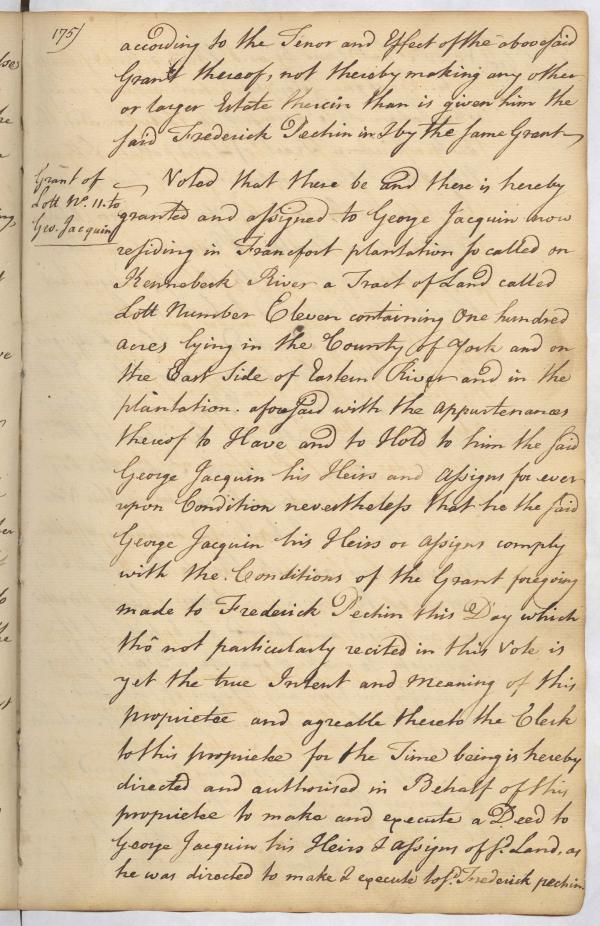 175/
according to the Tenor and Effect of the abovesaid
Grant thereof, not thereby making any other
or larger Estate therein than is given him the
said Frederick Pechin in & by the same Grant
Grant of
Lott No. 11. to
Geo. Jacquin
Voted that there be and there is hereby
granted and assigned to George Jacquin now
residing in Francfort plantation so called on
Kennebeck River a Tract of Land called
Lott Number Eleven containing One hundred
acres lying in the County of York and on
the East Side of Eastern River and in the
plantation. aforesaid with the appurtenances
thereof to Have and to Hold to him the said
George Jacquin his Heirs and Assigns for ever
upon Condition nevertheless that he the said
George Jacquin his Heirs or assigns comply
with the Conditions of the Grant foregoing
made to Frederick Pechin this Day which
tho not particularly recited in this Vote is
yet the true Intent and Meaning of this
proprietee and agreable thereto the Clerk
to this proprietee for the Time being is hereby
directed and authorised in Behalf of this
proprietee to make and execute a Deed to
George Jacquin his Heirs & Assigns of sd. Land, as
he was directed to make & execute to sd. Frederick pechin.